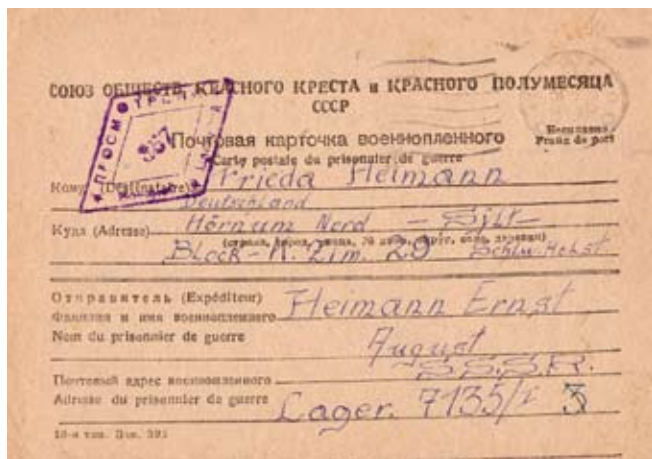 СОЮЗ ОБЩЕСТВ КРАСНОГО КРЕСТА и КРАСНОГО ПОЛУМЕСЯЦА
СССР
ПРОСМОТРЕНО
357
Почтовая карточка военнопленного
Carte postale du prisonnier de guerre
Бесплатно
Franc de port
Кому (Destinataire) Frieda Heimann
Deutschland
Куда (Adresse) Hörnum Nord – Sylt –
(страна, город, улица, № дома, округ, село, деревня)
Block - Zim. 29
Отправитель (Expéditeur) Heimann Ernst
Фамилия и имя военнопленного
Nom du prisonnier de guerre August
S.S.S.R.
Почтовый адрес военнопленного
Adresse du prisonnier de guerre Lager. 7135/ 3